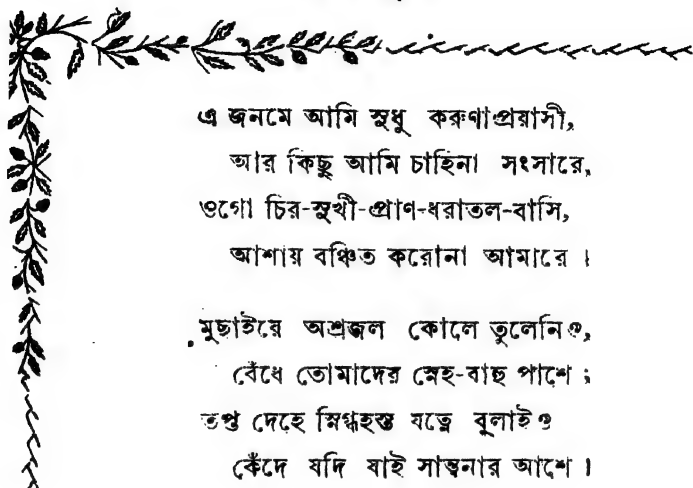 এ জনমে আমি সুধু করুণাপ্রয়াসী,
আর কিছু আমি চাহিনা সংসারে,
ওগো চির-সুখী-প্রাণ-ধরাতল-বাসি,
আশায় বঞ্চিত করোনা আমারে ।
মুছাইরে অশ্রুজল কোলে তুলেনিও,
বেঁধে তোমাদের স্নেহ-বাহু পাশে ;
তপ্ত দেহে স্নিগ্ধহস্ত যত্নে বুলাইও
কেঁদে যদি যাই সান্ত্বনার আশে ।